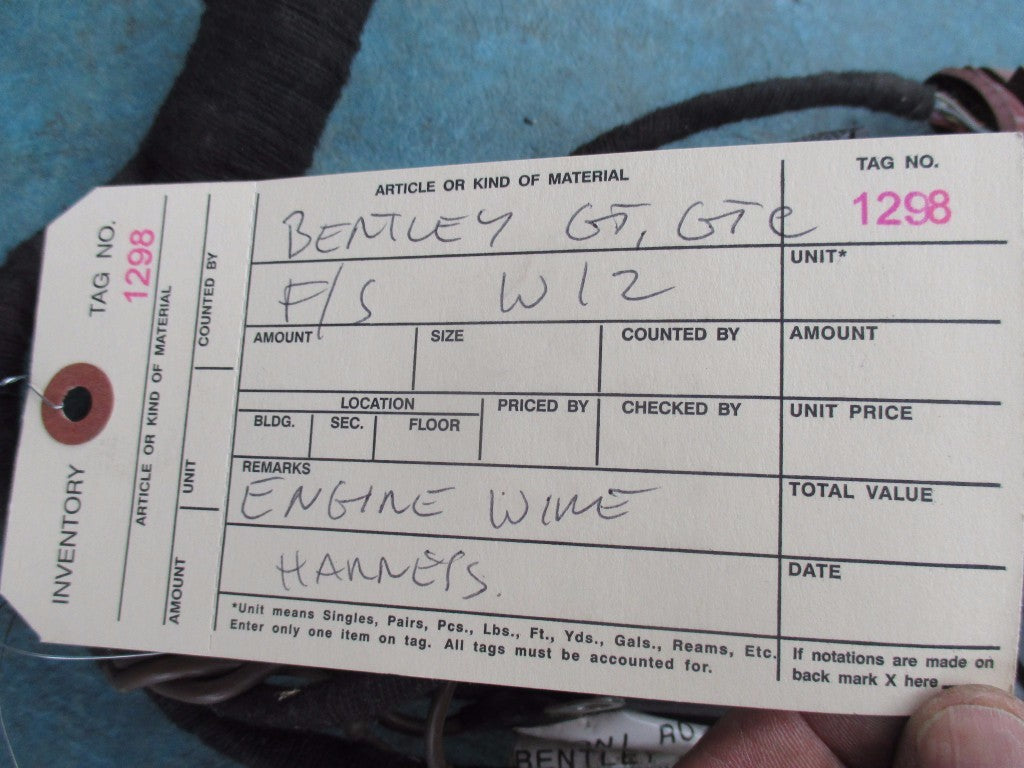 INVENTORY
TAG NO.
1298
ARTICLE OR KIND OF MATERIAL
AMOUNT
UNIT
COUNTED BY
ARTICLE OR KIND OF MATERIAL
BENTLEY GT, GTC
F/S W12
TAG NO.
1298
UNIT*
AMOUNT SIZE COUNTED BY AMOUNT
LOCATION PRICED BY CHECKED BY UNIT PRICE
BLDG. SEC. FLOOR
REMARKS
ENGINE WIRE
HARNESS.
TOTAL VALUE
DATE
*Unit means Singles, Pairs, Pcs., Lbs., Ft., Yds., Gals., Reams, Etc.
Enter only one item on tag. All tags must be accounted for.
If notations are made on
back mark X here
BENTLEY